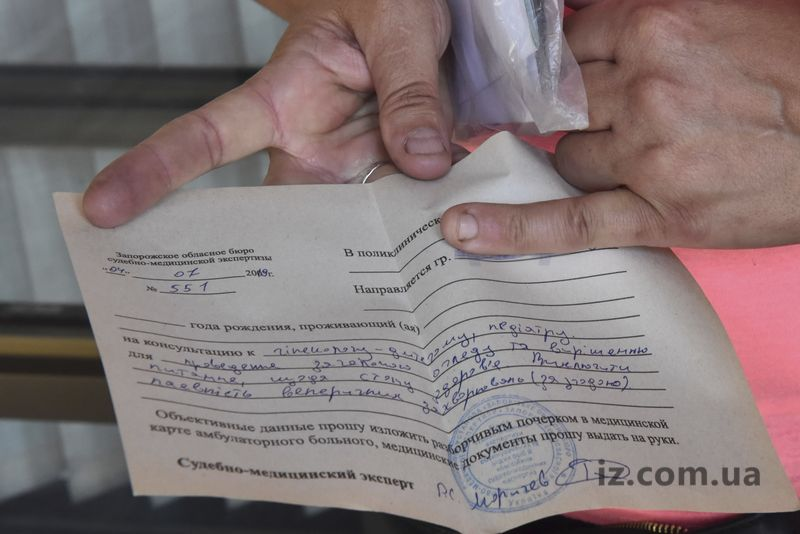 Запорожское обласное бюро
судебно-медицинской экспертизы
"04" 07 2019г.
№ 551
В поликлиническ
Направляется гр.
года рождения, проживающий (ая)
на консультацию к гінекологу-дитячому, педіатру
для проведення загального огляду та вирішенню
питання, щодо стану здоров'я. Виключити
наявність венеричних захворювань (за згодою)
Объективные данные прошу изложить разборчивым почерком в медицинской
карте амбулаторного больного, медицинские документы прошу выдать на руки.
Судебно-медицинский эксперт
iz.com.ua